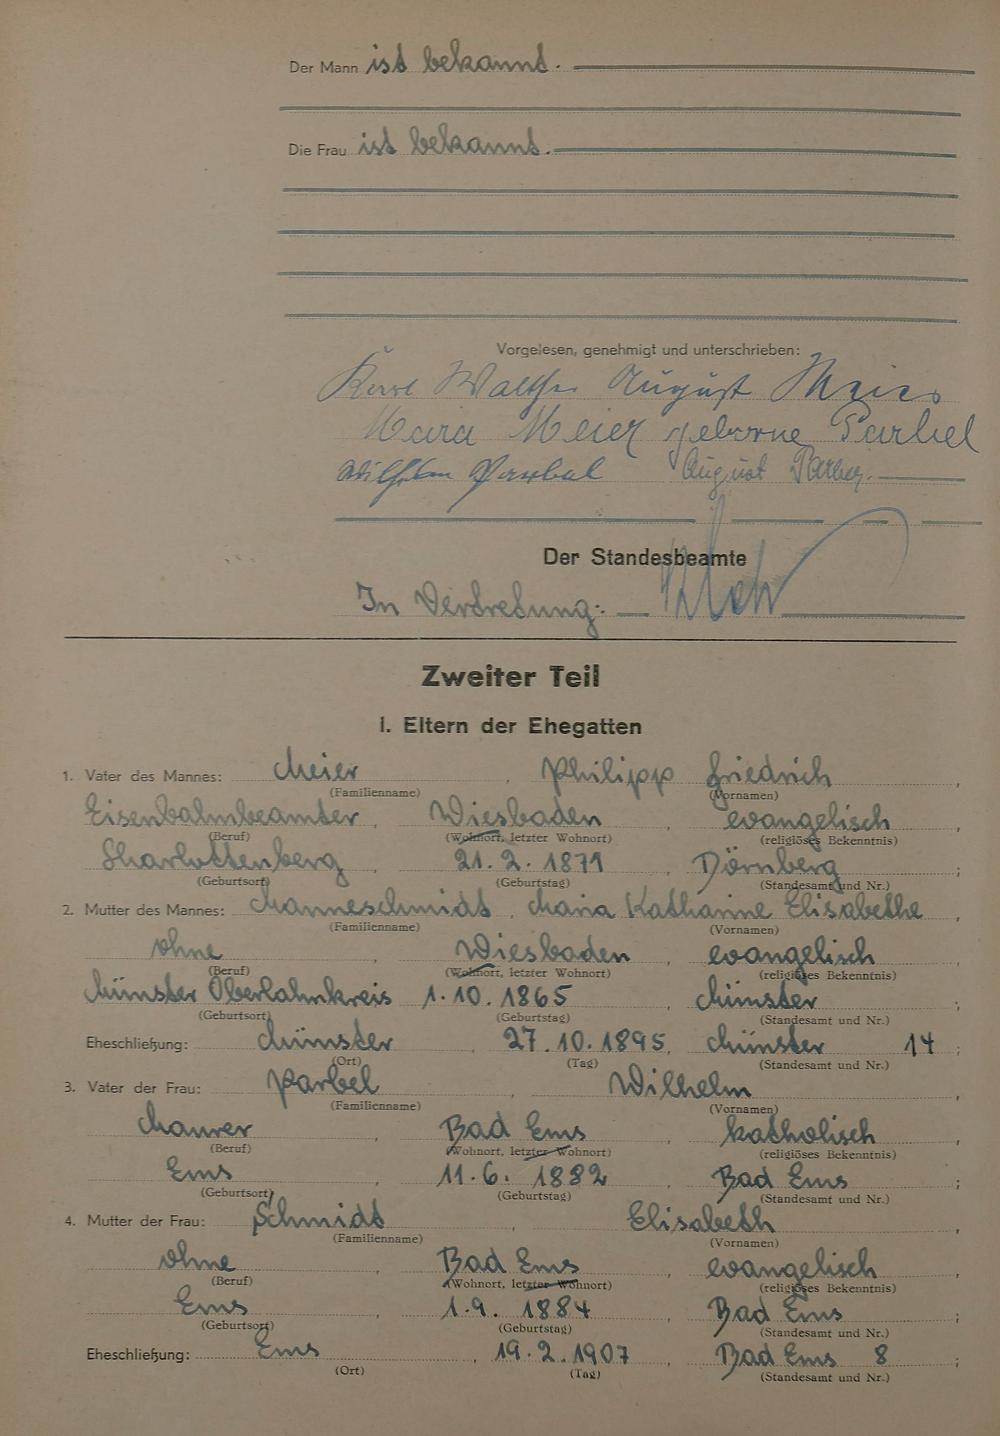 Der Mann ist bekannt.
Die Frau ist bekannt.
Vorgelesen, genehmigt und unterschrieben:
Karl Walther August Meier
Maria Meier geborne Parbel
Wilhelm Parbel August
Der Standesbeamte
In Vertretung:
Zweiter Teil
I. Eltern der Ehegatten
1. Vater des Mannes: Meier, Philipp Friedrich,
(Familienname) (Vornamen)
Eisenbahnbeamter, Wiesbaden, evangelisch,
(Beruf) (Wohnort, letzter Wohnort) (religiöses Bekenntnis)
Charlottenberg, 21. 2. 1871, Dörnberg;
(Geburtsort) (Geburtstag) (Standesamt und Nr.)
2. Mutter des Mannes: Manneschmidt, Maria Katharine Elisabethe,
(Familienname) (Vornamen)
ohne, Wiesbaden, evangelisch,
(Beruf) (Wohnort, letzter Wohnort) (religiöses Bekenntnis)
Münster Oberlahnkreis 1. 10. 1865, Münster;
(Geburtsort) (Geburtstag) (Standesamt und Nr.)
Eheschließung: Münster, 27. 10. 1895, Münster 14;
(Ort) (Tag) (Standesamt und Nr.)
3. Vater der Frau: Parbel, Wilhelm,
(Familienname) (Vornamen)
Maurer, Bad Ems, katholisch,
(Beruf) (Wohnort, letzter Wohnort) (religiöses Bekenntnis)
Ems, 11. 6. 1882, Bad Ems;
(Geburtsort) (Geburtstag) (Standesamt und Nr.)
4. Mutter der Frau: Schmidt, Elisabeth,
(Familienname) (Vornamen)
ohne, Bad Ems, evangelisch,
(Beruf) (Wohnort, letzter Wohnort) (religiöses Bekenntnis)
Ems, 1. 9. 1884, Bad Ems;
(Geburtsort) (Geburtstag) (Standesamt und Nr.)
Eheschließung: Ems, 19. 2. 1907, Bad Ems 8;
(Ort) (Tag) (Standesamt und Nr.)